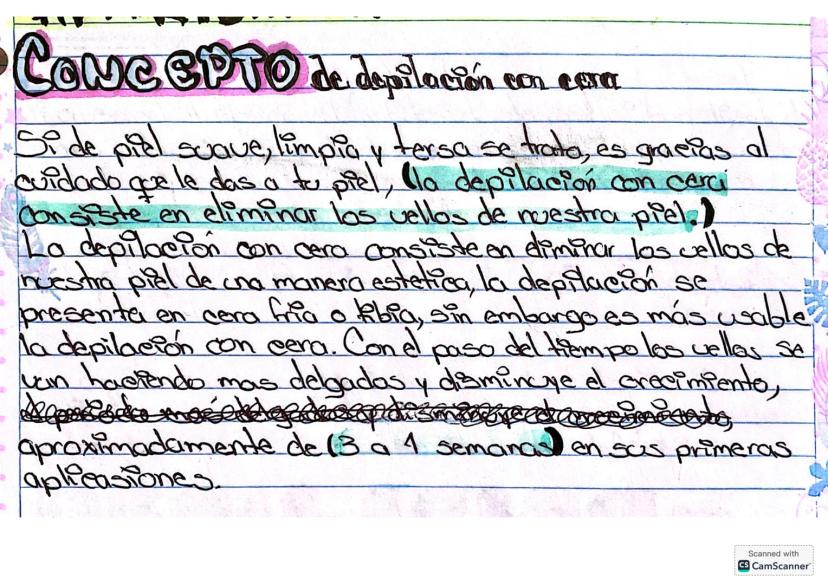 CONCEPTO de depilación con cera
Si de piel suave, limpia y tersa se trata, es gracias al
cuidado que le das a tu piel, (la depilación con cera
consiste en eliminar los vellos de nuestra piel.)
La depilación con cera consiste en eliminar los vellos de
nuestra piel de una manera estetica, la depilación se
presenta en cera fria o tibia, sin embargo es más usable
la depilación con cera. Con el paso del tiempo los vellos se
van haciendo mas delgados y disminuye el crecimiento,
aproximadamente de (3 a 4 semanas) en sus primeras
aplicasiones.
Scanned with
CS CamScanner